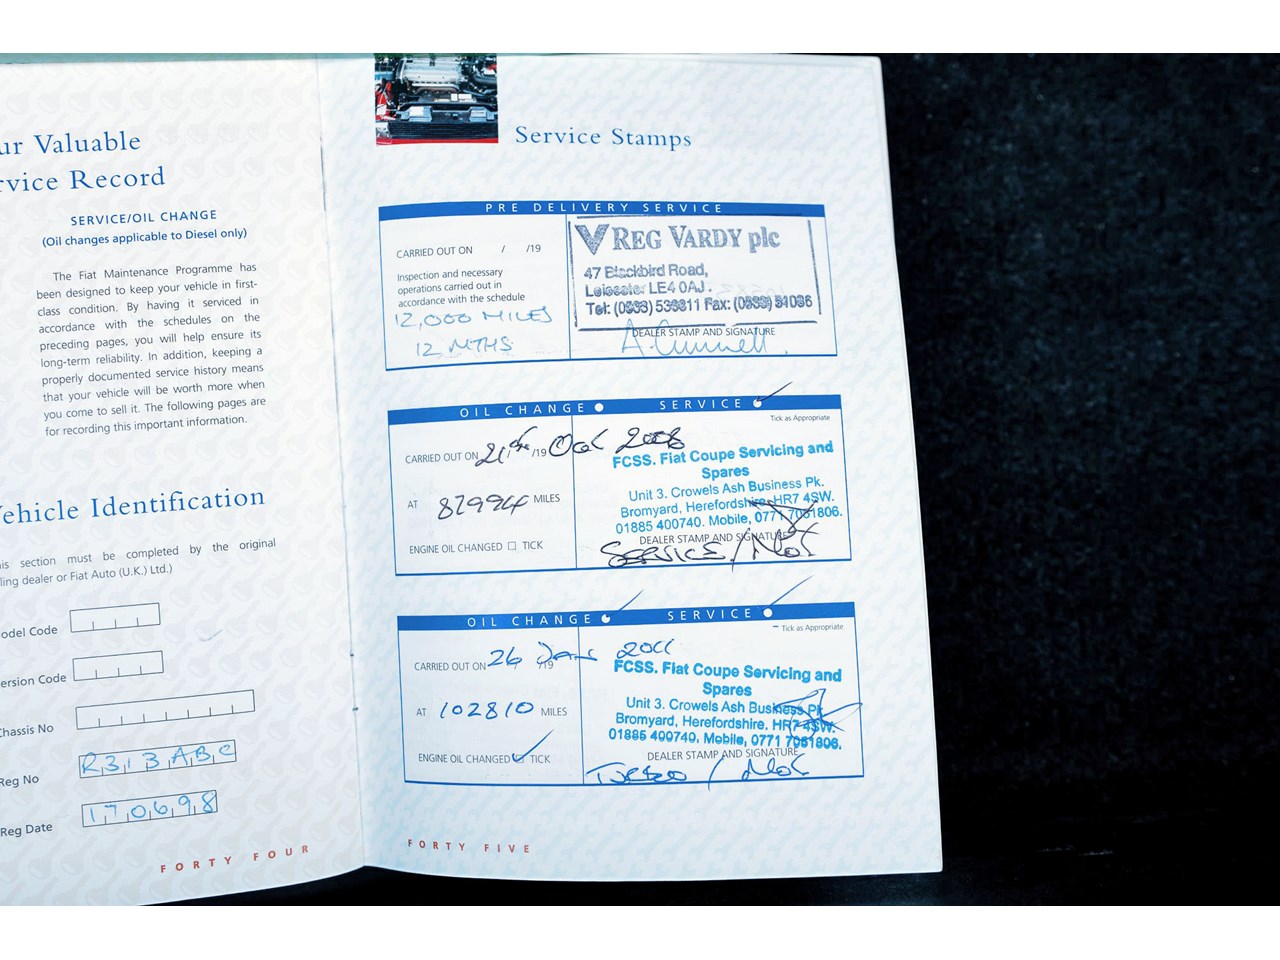 ur Valuable
rvice Record
SERVICE/OIL CHANGE
(Oil changes applicable to Diesel only)
The Fiat Maintenance Programme has
been designed to keep your vehicle in first-
class condition. By having it serviced in
accordance with the schedules on the
preceding pages, you will help ensure its
long-term reliability. In addition, keeping a
properly documented service history means
that your vehicle will be worth more when
you come to sell it. The following pages are
for recording this important information.
ehicle Identification
is section must be completed by the original
ling dealer or Fiat Auto (U.K.) Ltd.)
odel Code
ersion Code
Chassis No
Reg No R313ABC
Reg Date 170698
FORTY FOUR
Service Stamps
PRE DELIVERY SERVICE
CARRIED OUT ON / /19
Inspection and necessary
operations carried out in
accordance with the schedule
12,000 MILES
12 MTHS
REG VARDY plc
47 Blackbird Road,
Leicester LE4 0AJ.
Tel: (0533) 536811 Fax: (0533) 51036
DEALER STAMP AND SIGNATURE
OIL CHANGE SERVICE
Tick as Appropriate
CARRIED OUT ON 21st /19 Oct 2008
AT 87994 MILES
ENGINE OIL CHANGED TICK
FCSS. Fiat Coupe Servicing and
Spares
Unit 3. Crowels Ash Business Pk.
Bromyard, Herefordshire. HR7 4SW.
01885 400740. Mobile, 0771 7051806.
DEALER STAMP AND SIGNATURE
SERVICE / Mot
OIL CHANGE SERVICE
Tick as Appropriate
CARRIED OUT ON 26 Jan /19 2011
AT 102810 MILES
ENGINE OIL CHANGED TICK
FCSS. Fiat Coupe Servicing and
Spares
Unit 3. Crowels Ash Business Pk.
Bromyard, Herefordshire. HR7 4SW.
01885 400740, Mobile, 0771 7051806.
DEALER STAMP AND SIGNATURE
Turbo / Mot
FORTY FIVE